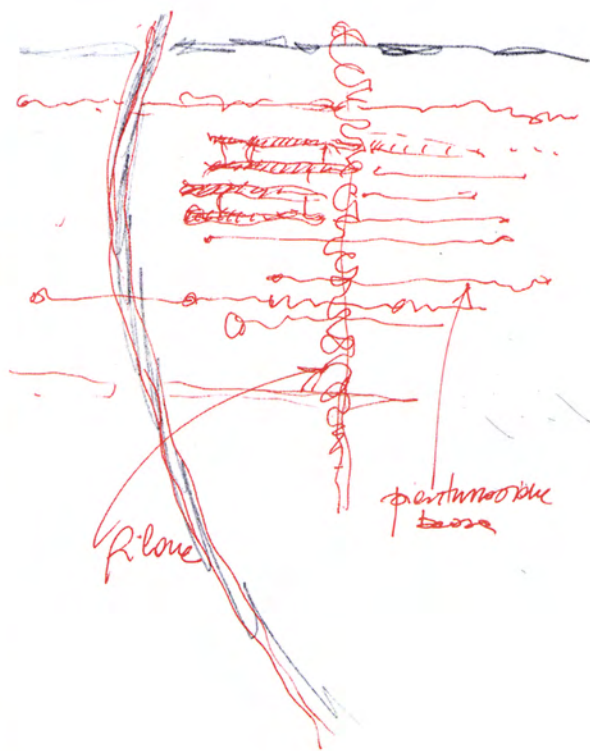 filone
piantumazione
bassa